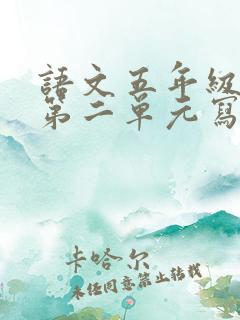 語文五年級
第二單元寫
卡哈尔
未经同意禁止转载